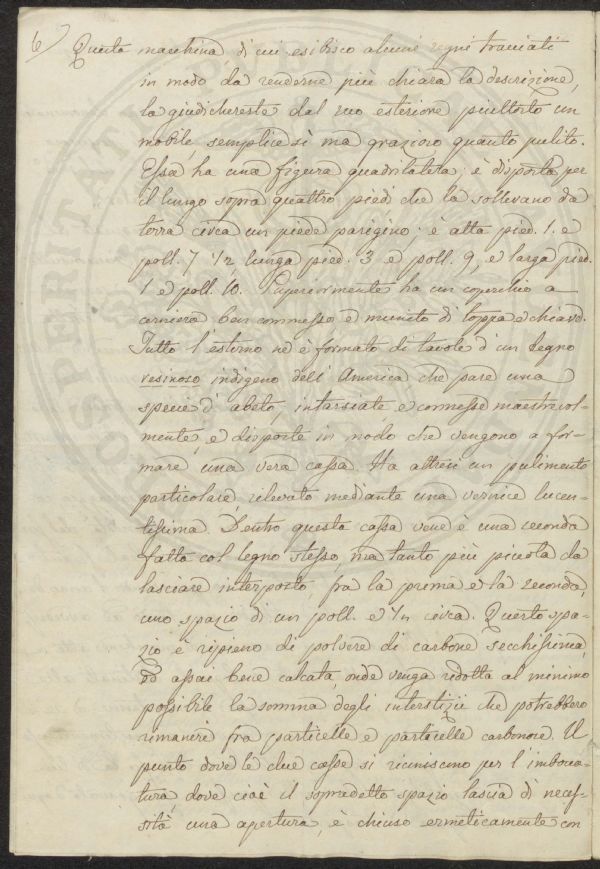 6) Questa macchina, di cui esibisco alcuni segni tracciati
in modo da renderne più chiara la descrizione,
la giudichereste dal suo esteriore piuttosto un
mobile, semplice sì ma grazioso quanto pulito.
Essa ha una figura quadrilatera, è disposta per
il lungo sopra quattro piedi che la sollevano da
terra circa un piede parigino; è alta pied. 1. e
poll. 7 1/2, lunga pied. 3 e poll. 9, e larga pied.
1 e poll. 10. Superiormente ha un coperchio a
cerniera ben commesso e munito di toppa e chiave.
Tutto l'esterno ne è formato di tavole d'un legno
resinoso indigeno dell'America che pare una
specie d'abeto, intarsiate e connesse maestrevol-
mente, e disposte in modo che vengono a for-
mare una vera cassa. Ha altresì un pulimento
particolare rilevato mediante una vernice lucen-
tissima. Dentro questa cassa vene è una seconda
fatta col legno stesso, ma tanto più piccola da
lasciare interposto, fra la prima e la seconda,
uno spazio di un poll. e 1/2 circa. Questo spa-
zio è ripieno di polvere di carbone secchissima,
ed assai bene calcata, onde venga ridotta al minimo
possibile la somma degli interstizii che potrebbero
rimanere fra particelle e particelle carbonose. Il
punto dove le due casse si riuniscono per l'imbocca-
tura, dove cioè il sopradetto spazio lascia di neces-
sità una apertura, è chiuso ermeticamente con